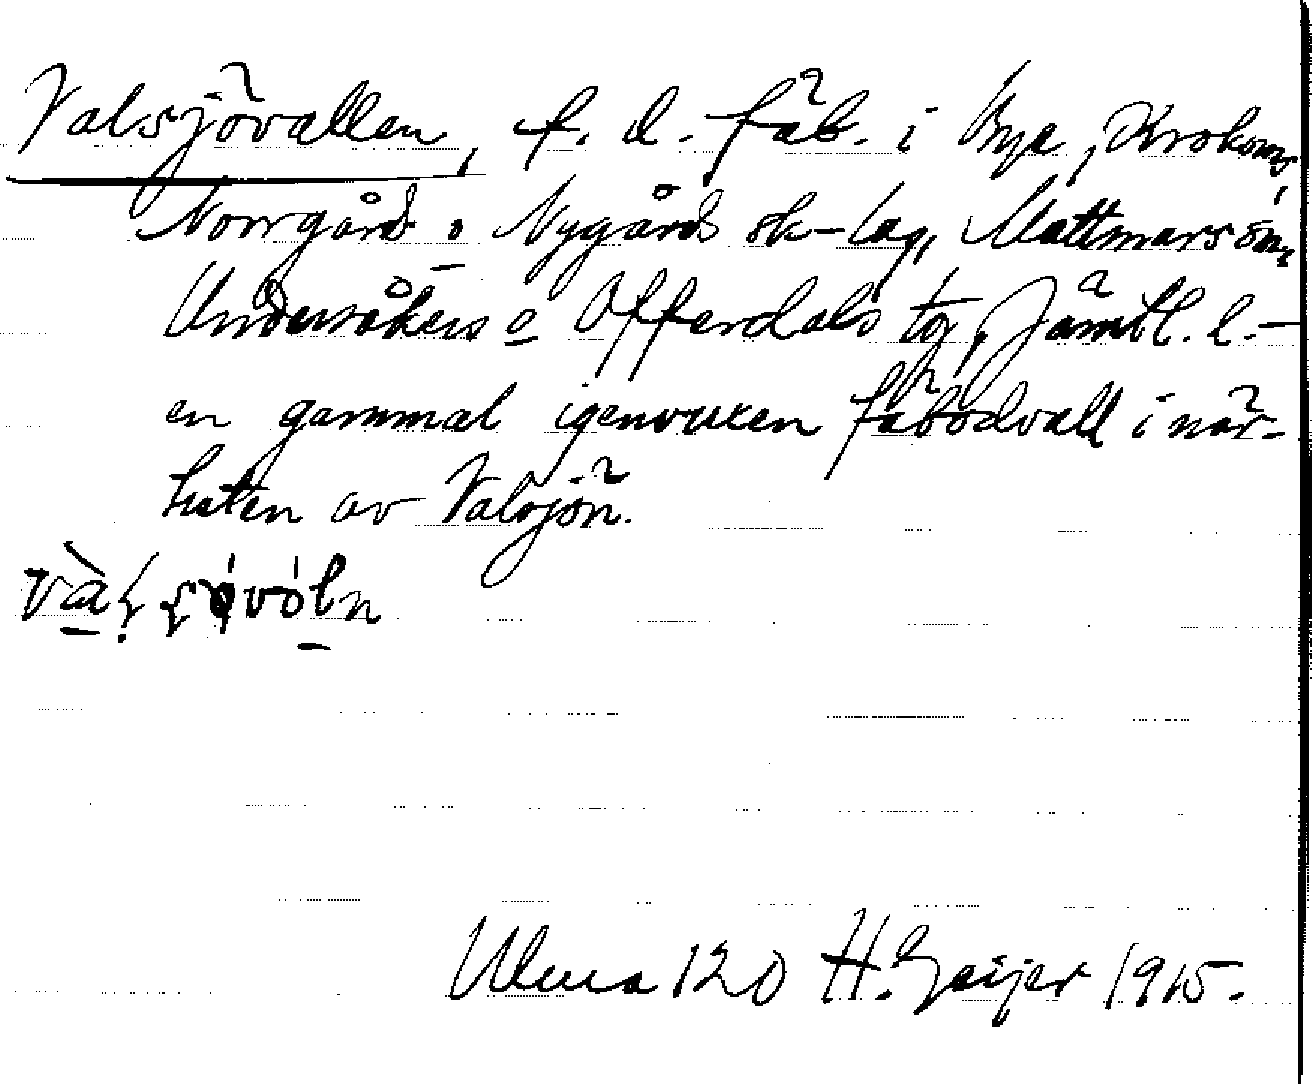 Valsjövallen, f. d. fäb. i Bye, Krokoms,
Norrgårds o Nygårds sk-lag, Mattmars sn,
Undersåkers o Offerdals tg, Jämtl. l. –
en gammal igenvuxen fäbodvall i när-
heten av Valsjön.
Ulma 120 H. Geijer 1915.